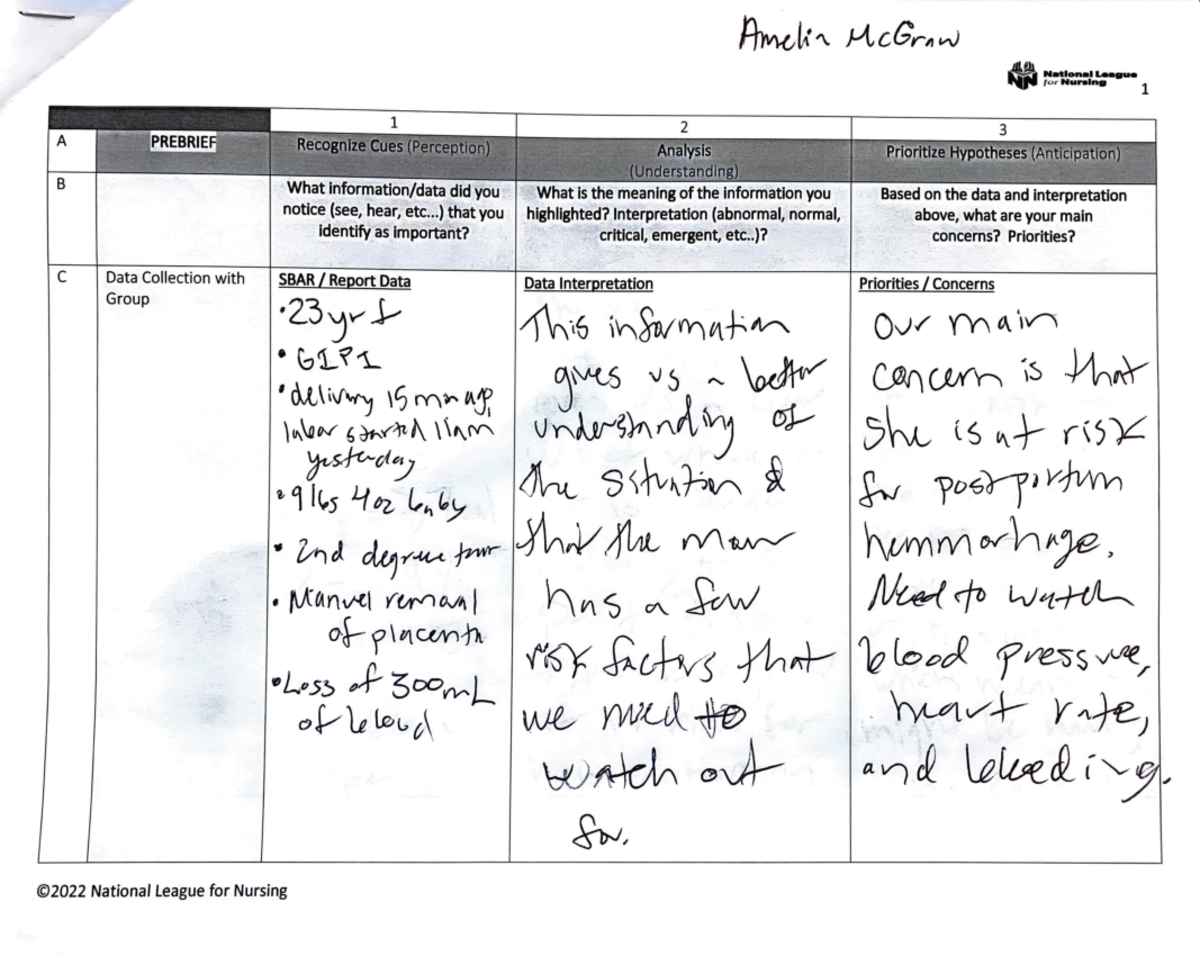 Amelia McGraw
National League
for Nursing
1
1
2
3
A
PREBRIEF
Recognize Cues (Perception)
Analysis
(Understanding)
Prioritize Hypotheses (Anticipation)
B
What information/data did you
notice (see, hear, etc...) that you
identify as important?
What is the meaning of the information you
highlighted? Interpretation (abnormal, normal,
critical, emergent, etc..)?
Based on the data and interpretation
above, what are your main
concerns? Priorities?
C
Data Collection with
Group
SBAR / Report Data
• 23 yr f
• G1P1
• delivery 15 min ago,
labor started 11am
yesterday
• 9 lbs 4oz baby
• 2nd degree tear
• Manuel removal
of placenta
• Loss of 300mL
of blood
Data Interpretation
This information
gives us a better
understanding of
the situation &
that the mom
has a few
risk factors that
we need to
watch out
for.
Priorities / Concerns
Our main
concern is that
she is at risk
for postpartum
hemmorhage.
Need to watch
blood pressure,
heart rate,
and bleeding.
©2022 National League for Nursing